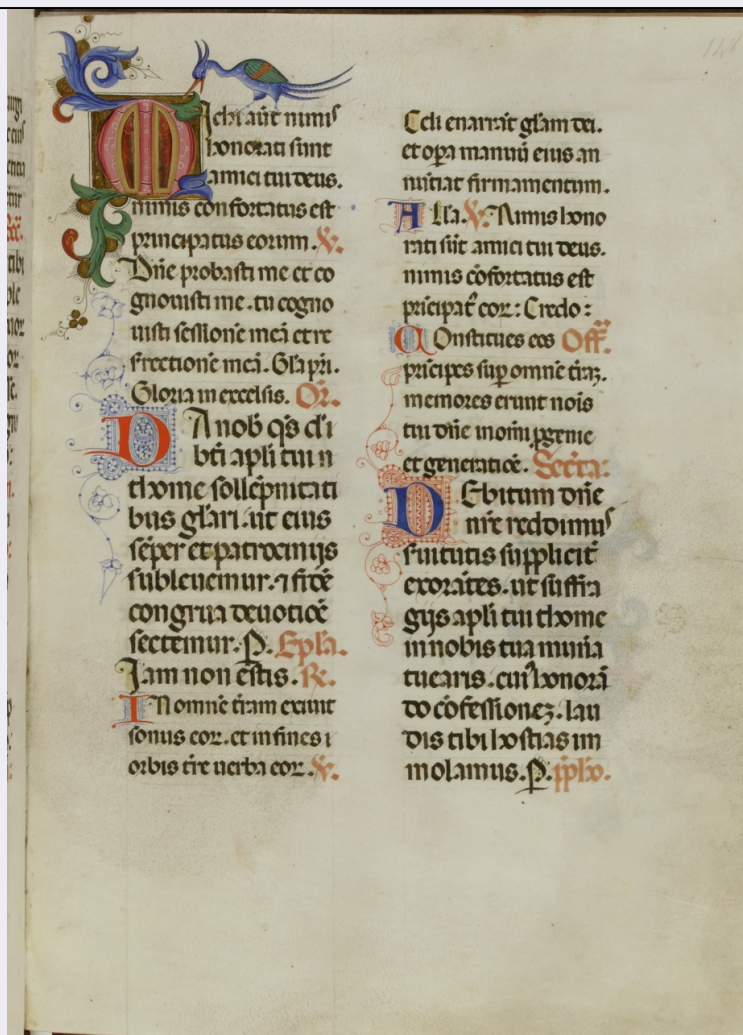 Michi aūt nimis
honorati sunt
amici tui deus.
nimis confortatus est
principatus eorum. V.
Dn̄e probasti me et co
gnouisti me. tu cogno
uisti sessionē meā et re
surrectionē meā. Gl̄a pr̄i.
Gloria in excelsis. Or̄.
DA nob̄ q̄s d̄s
bt̄i apl̄i tui
thome sollēpnitati
bus gl̄ari. ut eius
sēper et patrocinijs
subleuemur. ⁊ fidē
congrua deuotiōe
sectemur. P. Epl̄a.
Iam non ēstis. R.
IN omnē t̄ram exiuit
sonus eoꝝ. et in fines
orbis t̄re uerba eoꝝ. V.
Celi enarrāt gl̄am dei.
et oꝑa manuū eius an
nūtiat firmamentum.
All̄a. V. Nimis hono
rati sūt amici tui deus.
nimis cōfortatus est
prīcipat᷒ eoꝝ: Credo:
COnstitues eos Off̄.
prīcipes suꝑ omnē t̄raꝫ.
memores erunt nōis
tui dn̄e in om̄i ꝓgenie
et generatiōe. Secr̄ta:
DEbitum dn̄e
nr̄e reddimus
s̄uitutis suppliciť
exorātes. ut suffra
gijs apl̄i tui thome
in nobis tua munia
tuearis. cui᷒ honorā
do cōfessioneꝫ. lau
dis tibi hostias im
molamus. P. p̄ph̄o.